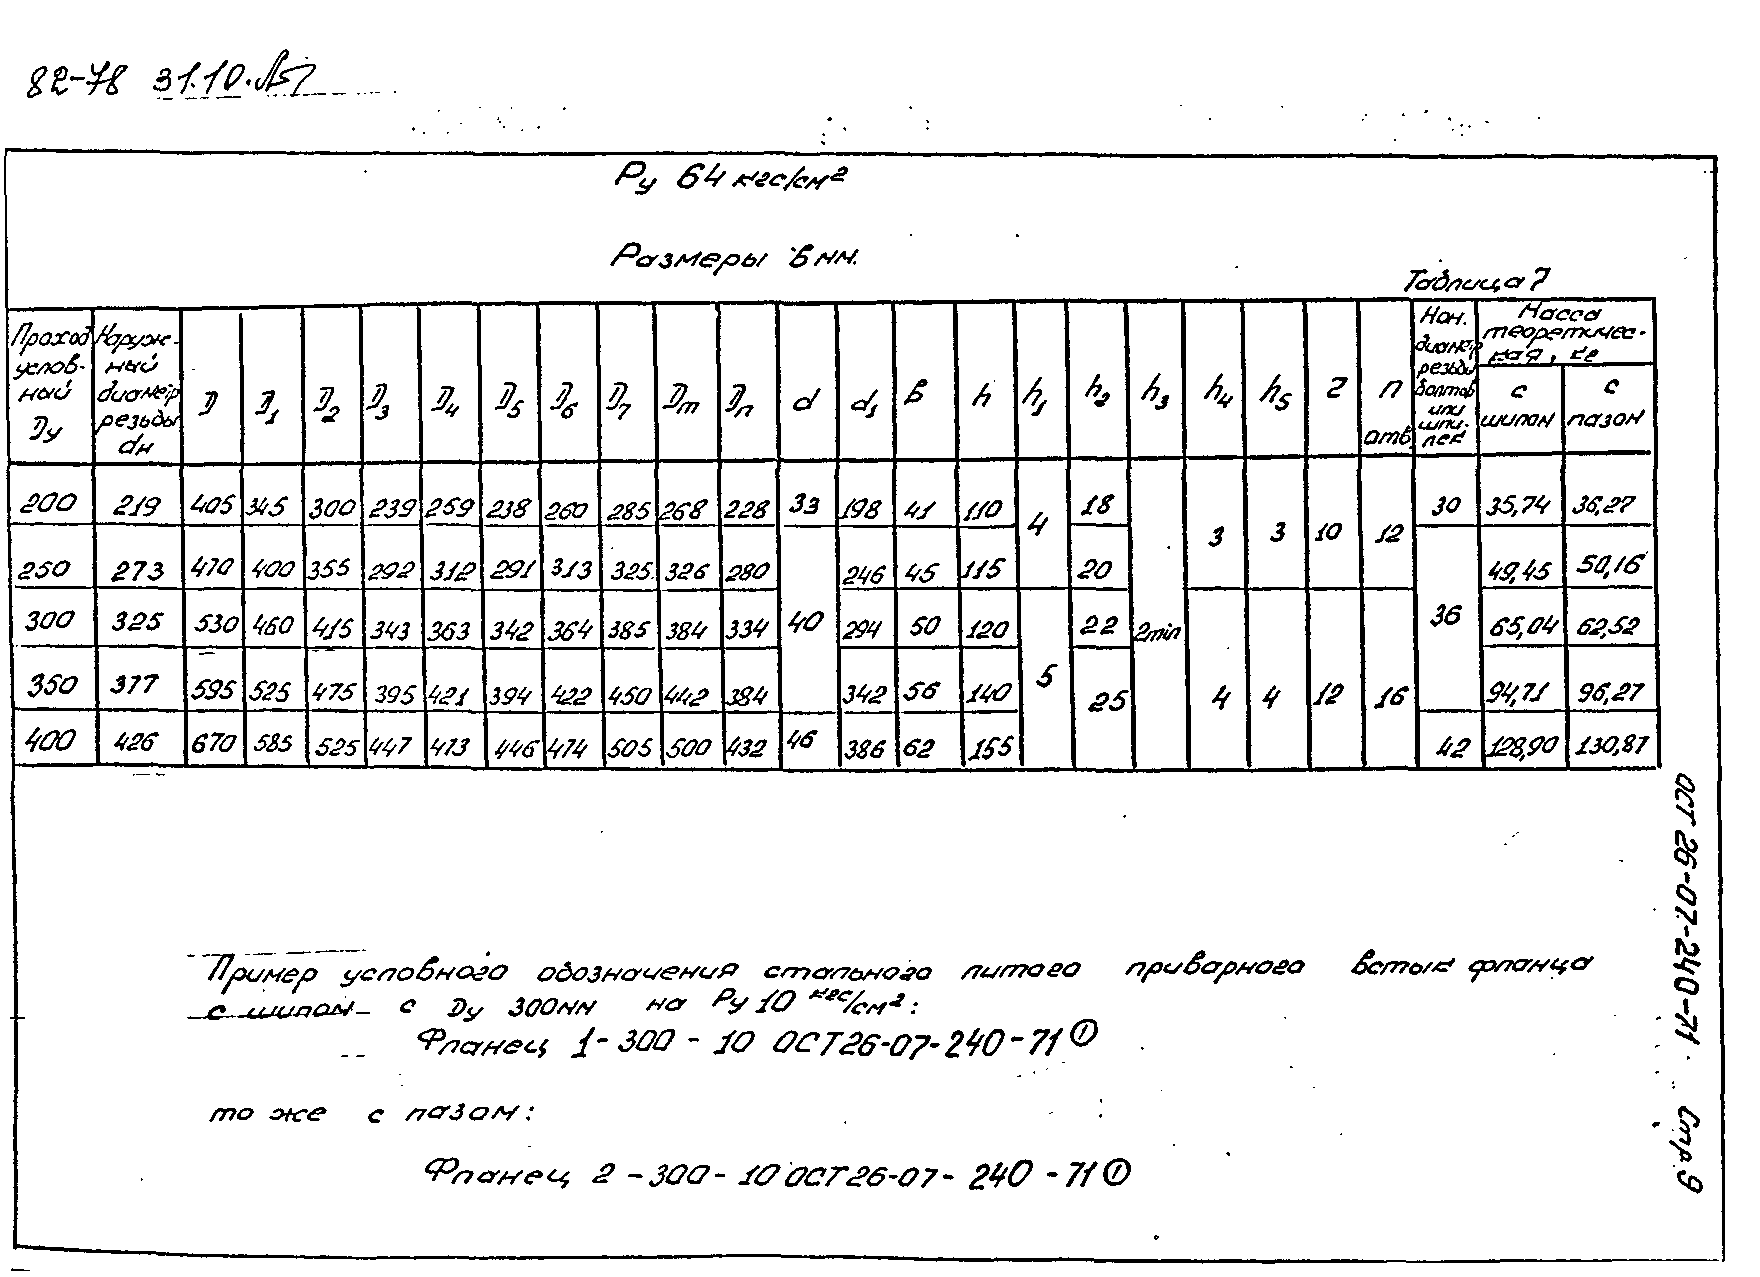 82-78 31.10.
Ру 64 кгс/см²
Размеры в мм.
Таблица 7
Проход условный Ду | Наружный диаметр резьбы dн | D | D1 | D2 | D3 | D4 | D5 | D6 | D7 | Dm | Dп | d | d1 | в | h | h1 | h2 | h3 | h4 | h5 | z | n отв | Ном. диаметр резьбы болтов или шпилек | Масса теоретическая, кг с шипом | с пазом
200 | 219 | 405 | 345 | 300 | 239 | 259 | 238 | 260 | 285 | 268 | 228 | 33 | 198 | 41 | 110 | 4 | 18 | 2min | 3 | 3 | 10 | 12 | 30 | 35,74 | 36,27
250 | 273 | 470 | 400 | 355 | 292 | 312 | 291 | 313 | 325 | 326 | 280 | 40 | 246 | 45 | 115 | 20 | 36 | 49,45 | 50,16
300 | 325 | 530 | 460 | 415 | 343 | 363 | 342 | 364 | 385 | 384 | 334 | 294 | 50 | 120 | 5 | 22 | 4 | 4 | 12 | 16 | 65,04 | 62,52
350 | 377 | 595 | 525 | 475 | 395 | 421 | 394 | 422 | 450 | 442 | 384 | 342 | 56 | 140 | 25 | 94,71 | 96,27
400 | 426 | 670 | 585 | 525 | 447 | 473 | 446 | 474 | 505 | 500 | 432 | 46 | 386 | 62 | 155 | 42 | 128,90 | 130,87
Пример условного обозначения стального литого приварного встык фланца
с шипом с Ду 300мм на Ру 10 кгс/см²:
Фланец 1-300-10 ОСТ26-07-240-71 ①
то же с пазом:
Фланец 2-300-10 ОСТ26-07-240-71 ①
ОСТ 26-07-240-71 Стр. 9